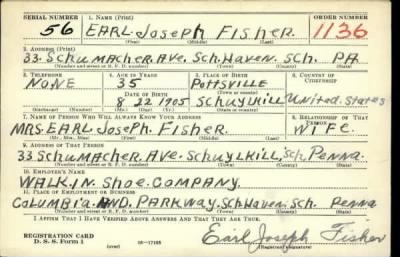 SERIAL NUMBER 1. NAME (Print) ORDER NUMBER
56 EARL JOSEPH FISHER 1136
(First) (Middle) (Last)
2. ADDRESS (Print)
33 SCHUMACHER AVE. SCH. HAVEN. SCH. PA
(Number and street or R. F. D. number) (Town) (County) (State)
3. TELEPHONE 4. AGE IN YEARS 5. PLACE OF BIRTH 6. COUNTRY OF CITIZENSHIP
NONE 35 POTTSVILLE
(Town or county)
DATE OF BIRTH
8 22 1905 SCHUYLKILL United States
(Exchange) (Number) (Mo.) (Day) (Yr.) (State or country)
7. NAME OF PERSON WHO WILL ALWAYS KNOW YOUR ADDRESS 8. RELATIONSHIP OF THAT PERSON
MRS. EARL JOSEPH. FISHER. WIFE
(Mr., Mrs., Miss) (First) (Middle) (Last)
9. ADDRESS OF THAT PERSON
33 SCHUMACHER AVE SCHUYLKILL, SCH. PENNA.
(Number and street or R. F. D. number) (Town) (County) (State)
10. EMPLOYER'S NAME
WALK. IN. SHOE. COMPANY.
11. PLACE OF EMPLOYMENT OR BUSINESS
COLUMBIA. AND. PARKWAY. SCH. HAVEN. SCH. PENNA
(Number and street or R. F. D. number) (Town) (County) (State)
I AFFIRM THAT I HAVE VERIFIED ABOVE ANSWERS AND THAT THEY ARE TRUE.
REGISTRATION CARD
D. S. S. Form 1 (over) 16-17105
Earl Joseph Fisher
(Registrant's signature)